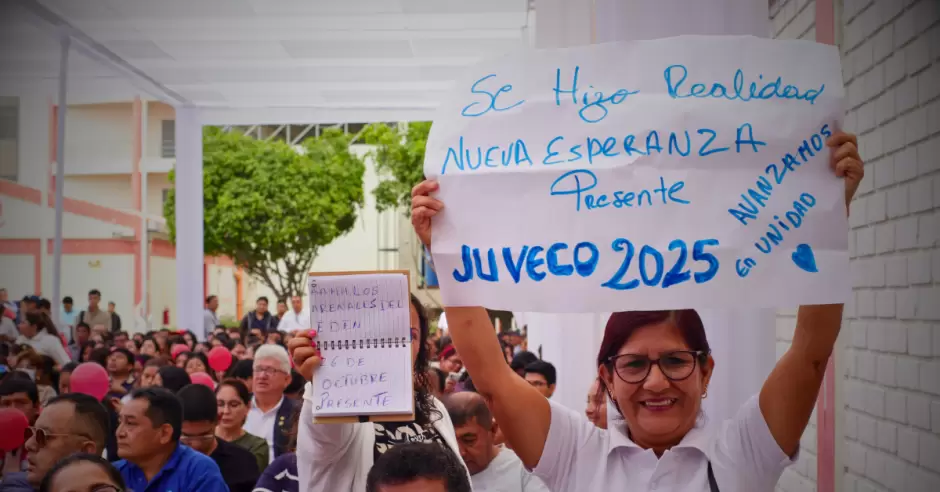 Se Hizo Realidad
NUEVA ESPERANZA
Presente
JUVECO 2025
AVANZAMOS
en UNIDAD
LOS
ARENALES DEL
EDEN
OCTUBRE
PRESENTE